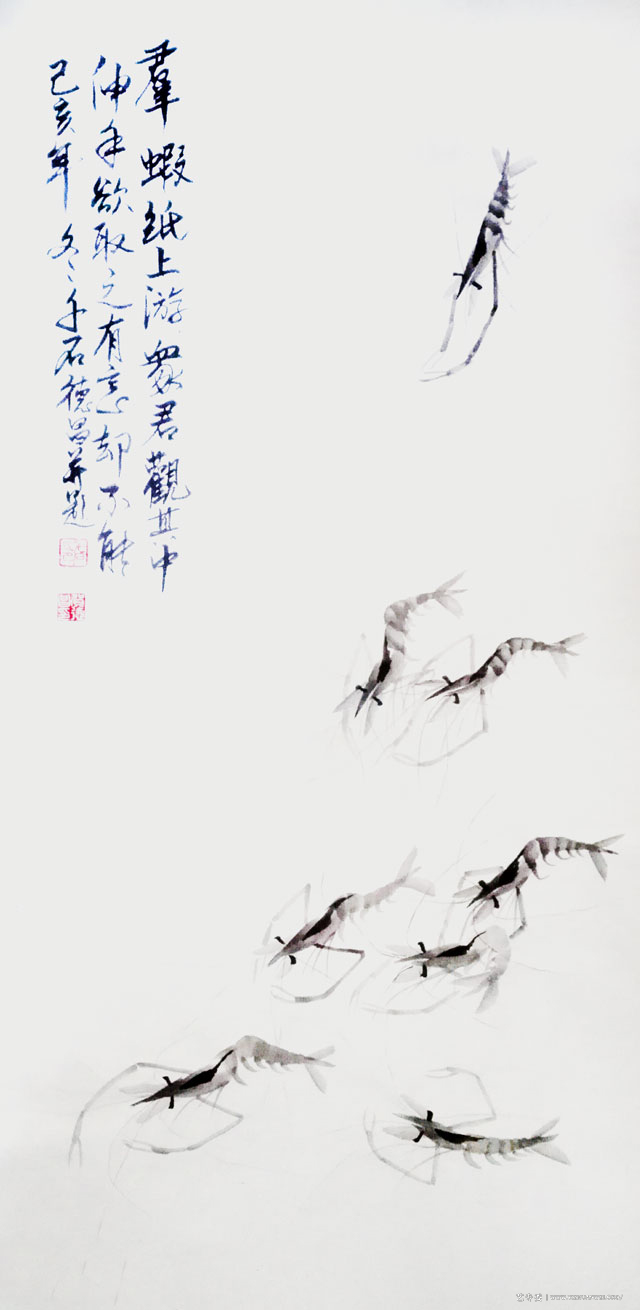 羣蝦紙上游衆君觀其中
伸手欲取之有忘却不能
己亥年冬

千石德昌并題